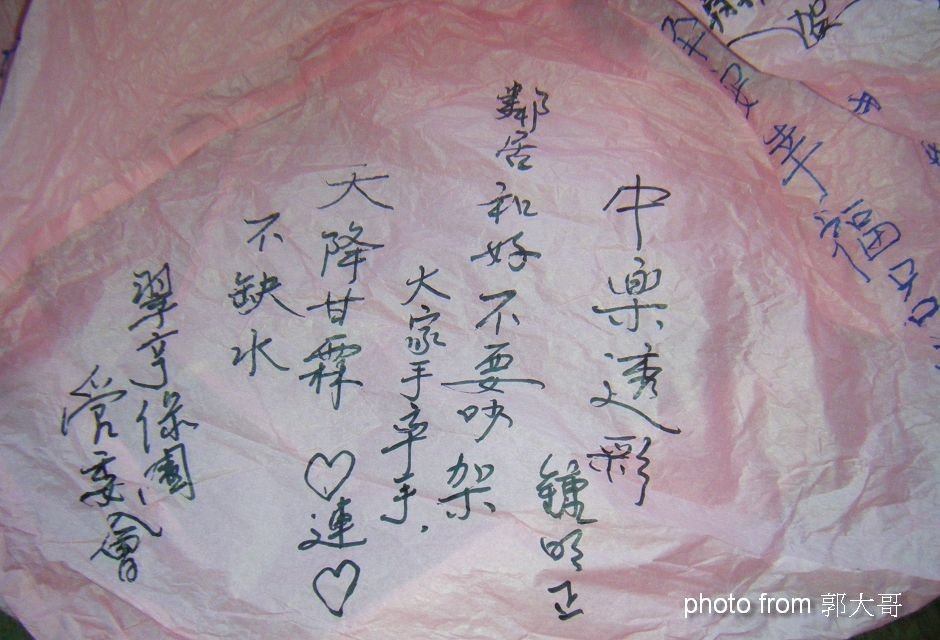 幸福
中樂透彩
鍾明正
鄰居和好不要吵架
大家手牽手,
天降甘霖♡連♡
不缺水
翠亨園
管委會
photo from 郭大哥